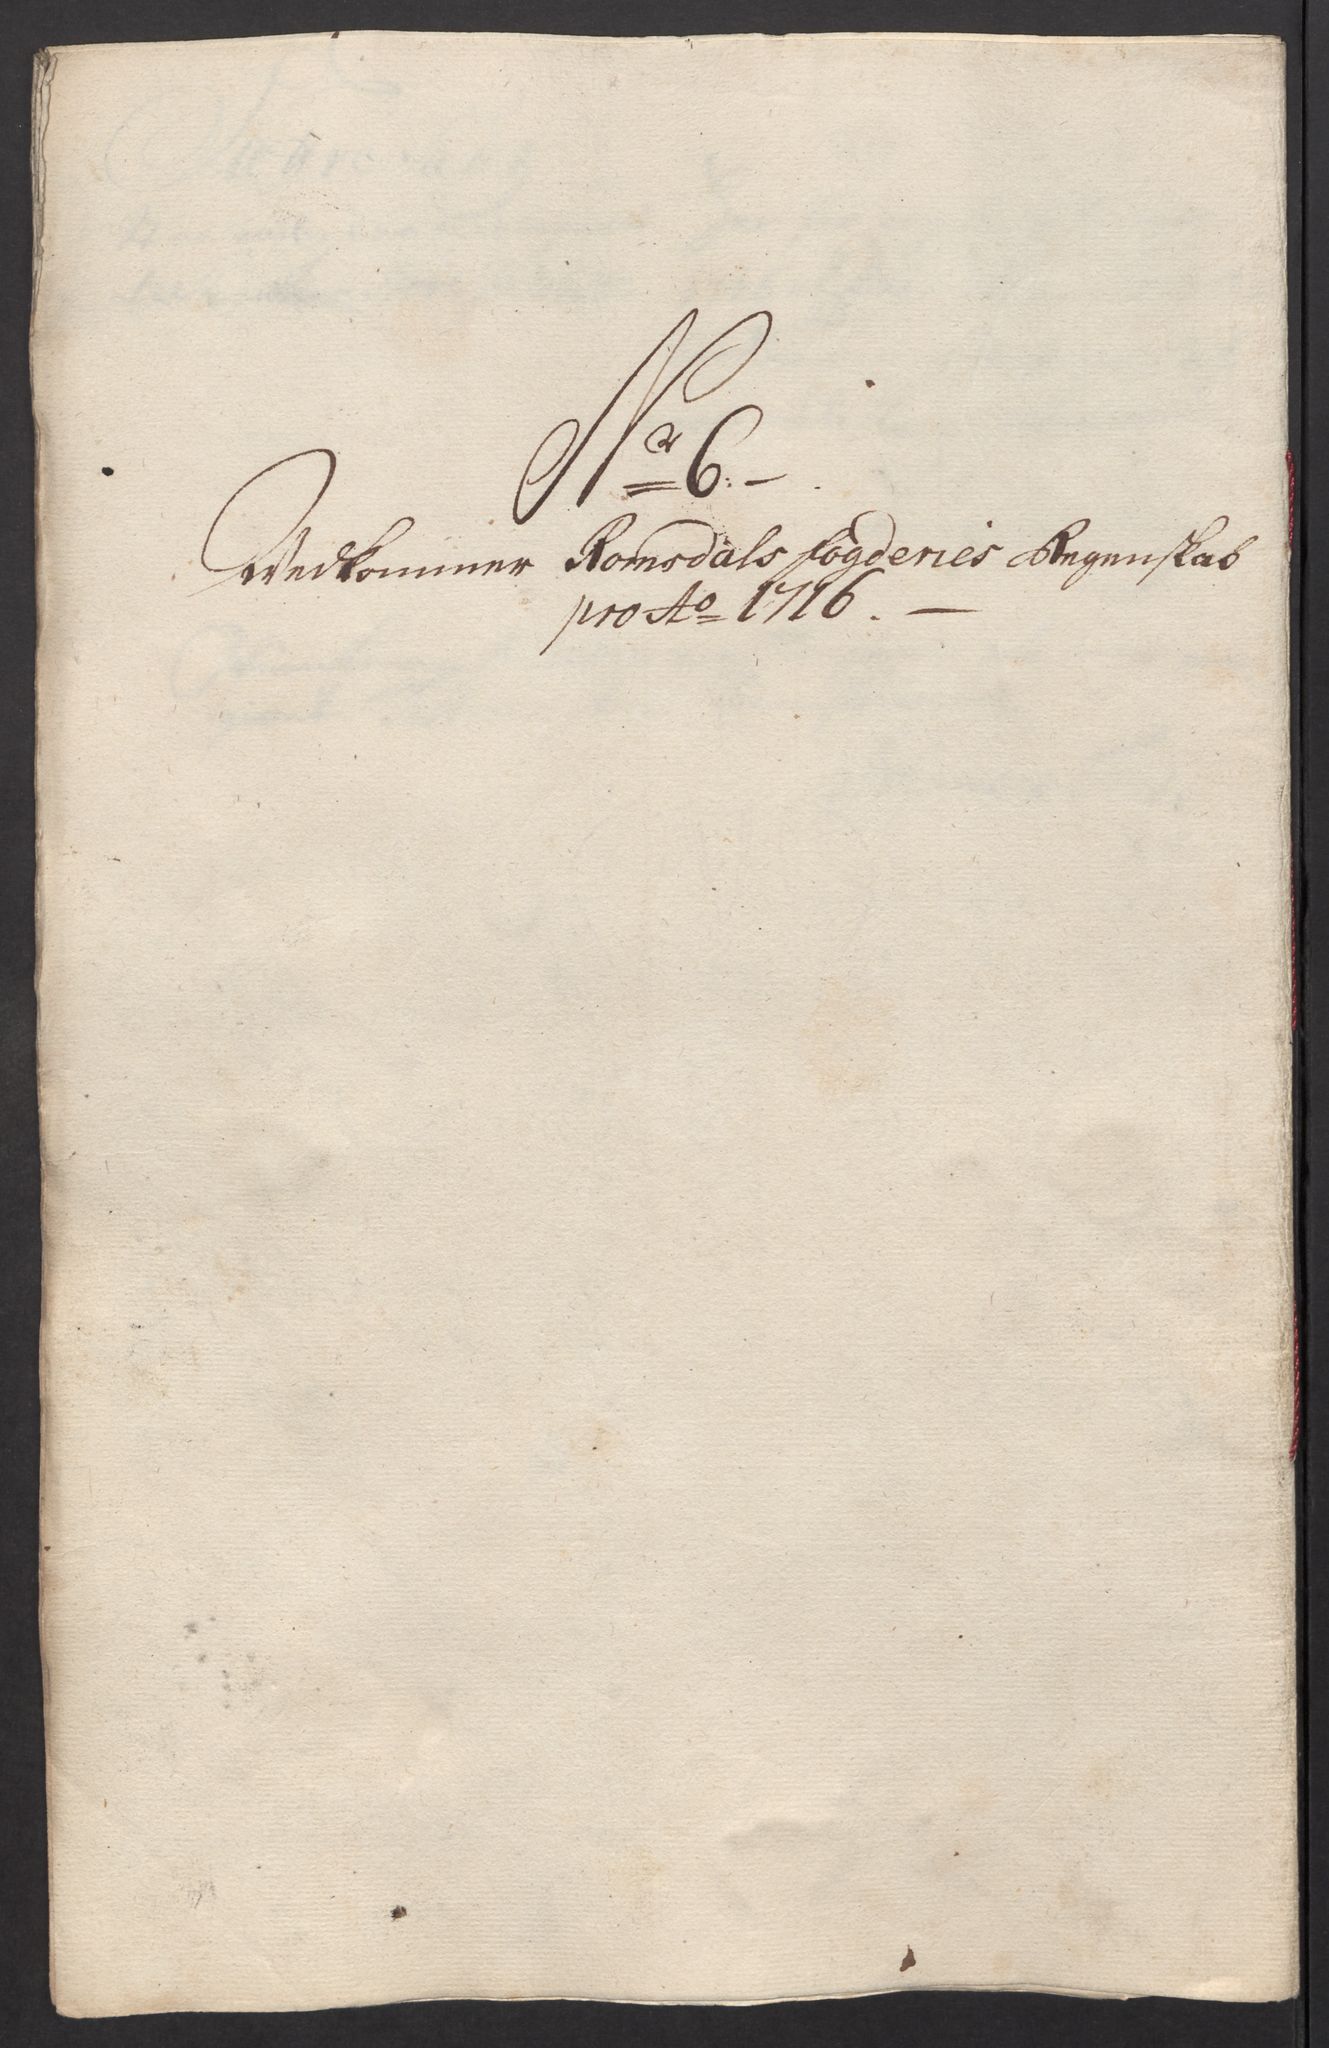 Nr 6.
Vedkommer Romsdals fogderies Regenskab
pro Ao 1716.